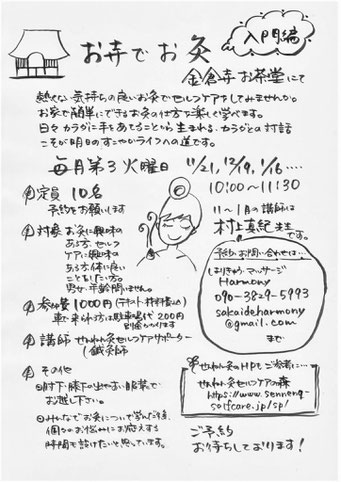 お寺でお灸
入門編
金倉寺お茶堂にて
熱くない気持ちの良いお灸でセルフケアをしてみませんか。
お家で簡単にできるお灸の仕方を楽しく学べます。
日々カラダに手をあてることから生まれる、カラダとの対話
こそが明日のすこやかライフへの道です。
毎月第3火曜日 11/21, 12/19, 1/16....
10:00〜11:30
定員 10名
予約をお願いします
対象 お灸に興味の
ある方、セルフ
ケアに興味の
ある方、体に良い
ことをしたい方。
男女・年齢問いません。
参加費 1000円(テキスト・材料費込)
車で来られる方は駐車場代200円
別途かかります
講師 せんねん灸セルフケアサポーター
(鍼灸師)
その他
肘下・膝下の出やすい服装で
お越し下さい。
みんなでお灸について学んだ後、
個々のお悩みにお応えする
時間も設けたいと思っています。
11〜1月の講師は
村上真紀先生
です。
予約・お問い合わせは…
しんきゅう・マッサージ
Harmony
090-3829-5993
sakaideharmony
@gmail.com
まで
せんねん灸のHPもご参考に…
せんねん灸セルフケアの森
https://www.sennenq-
selfcare.jp/sp/
ご予約
お待ちしております!